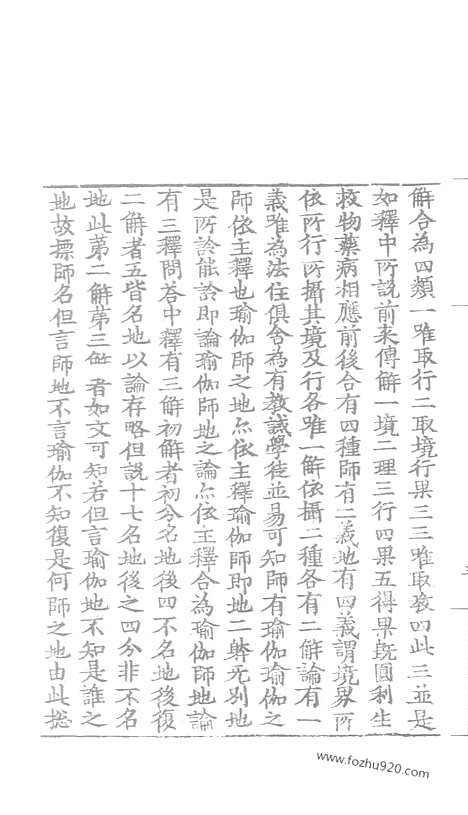 解合為四類一唯取行二取境行果三三唯取教四此三並是
如釋中所說前来傳解一境二理三行四果五得果既圓利生
救物藥病相應前後合有四種師有二義地有四義謂境界所
依所行所攝其境及行各唯一解依攝二種各有二解論有一
義唯為法住俱舍為有教誡學徒並易可知師有瑜伽瑜伽之
師依主釋也瑜伽師之地尒依主釋瑜伽師即地二躰无別地
是所詮能詮即論瑜伽師地之論尒依主釋合為瑜伽師地論
有三釋問荅中釋有三解初解者初分名地後四不名地後復
二解者五皆名地以論存略但說十七名地後之四分非不名
地此第二解第三世者如文可知若但言瑜伽地不知是誰之
地故摽師名但言師地不言瑜伽不知復是何師之地由此揔
www.fozhu920.com